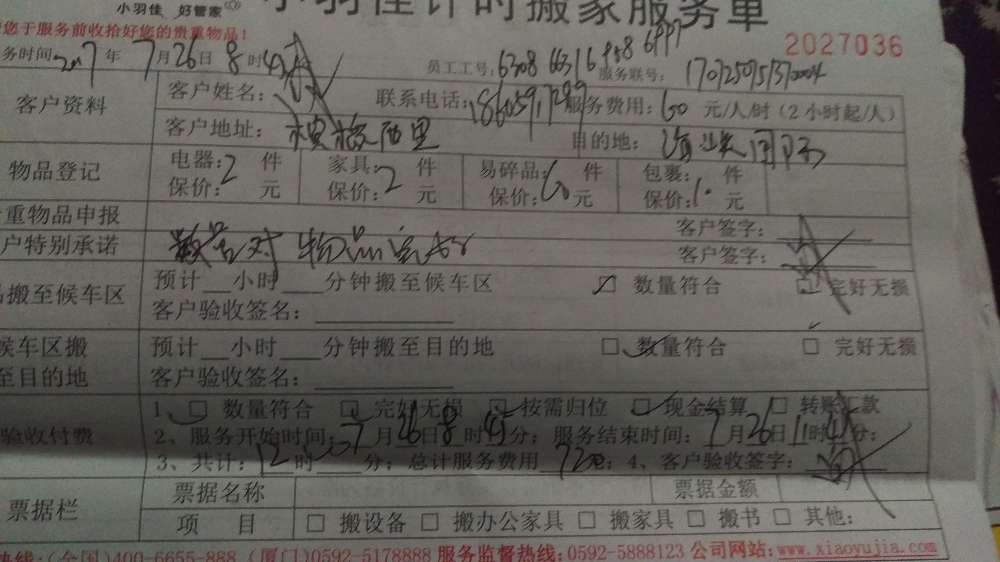 小羽佳 好管家
小羽佳计时搬家服务单
您于服务前收拾好您的贵重物品!
2027036
务时间:2017年7月26日8时45
员工工号:6308 6631 6958 6997
服务联号:
客户资料
客户姓名:
联系电话:
服务费用:60元/人/时(2小时起/人)
客户地址:
目的地:
物品登记
电器:2件 家具:2件 易碎品:件 包裹:件
保价:元 保价:元 保价:元 保价:元
重物品申报
客户签字:
户特别承诺
数量对 物品完好
客户签字:
品搬至候车区
预计__小时___分钟搬至候车区
数量符合 完好无损
客户验收签名:
候车区搬至目的地
预计__小时___分钟搬至目的地
数量符合 完好无损
客户验收签名:
验收付费
1、数量符合 完好无损 按需归位 现金结算 转账汇款
2、服务开始时间:7月26日8时45分;服务结束时间:7月26日11时45分;
3、共计:12时___分;总计服务费用720;4、客户验收签字:
票据栏
票据名称 票据金额
项 目 搬设备 搬办公家具 搬家具 搬书 其他:
热线:(全国)400-6655-888 (厦门)0592-5178888 服务监督热线:0592-5888123 公司网站:www.xiaoyujia.com